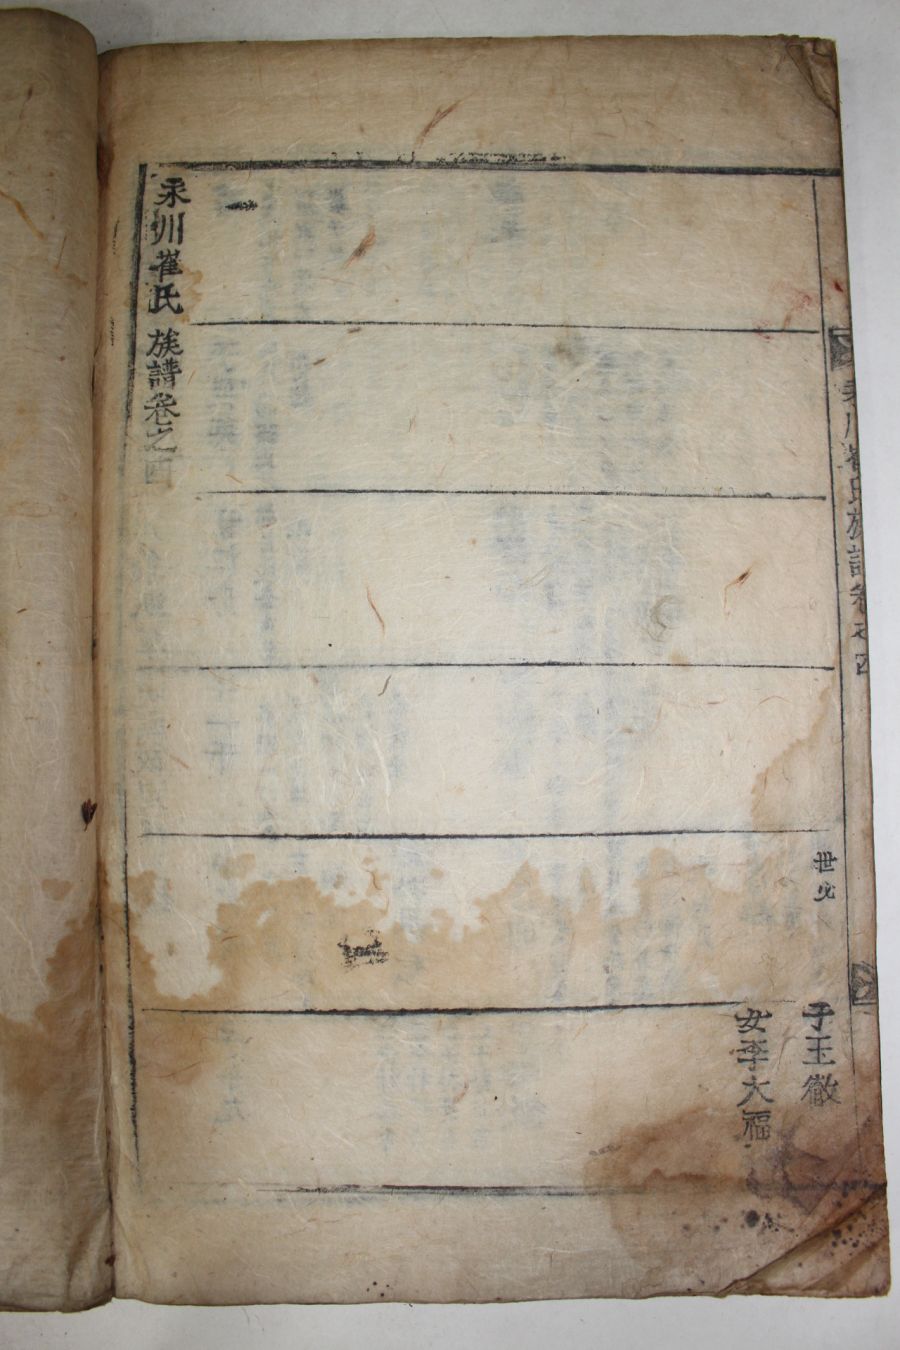 永川崔氏族譜卷之四
世必
子玉徹
女李大福
永川崔氏族譜卷之四